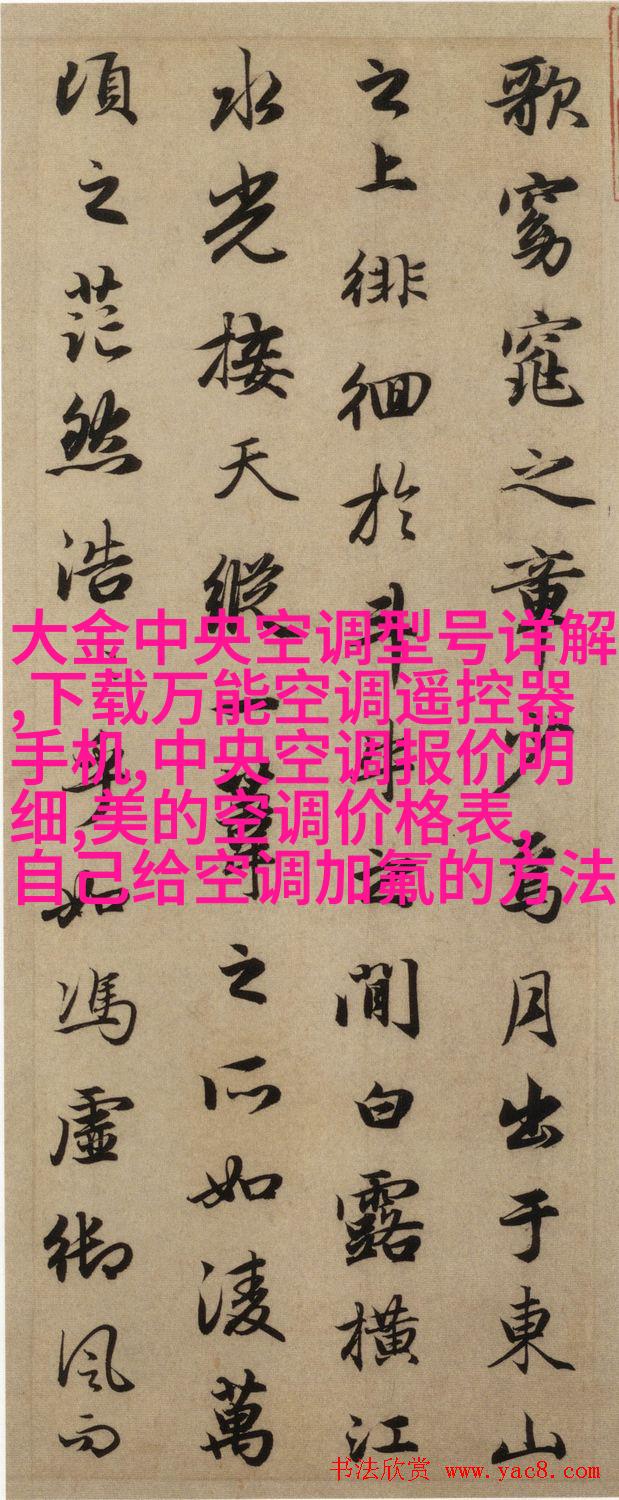 歌窈窕之章少焉月出于東山
之上徘徊於斗牛之間白露橫江
水光接天縱一葦之所如淩萬
頃之茫然浩乎如馮虛御風而
大金中央空调型号详解
,下载万能空调遥控器
手机,中央空调报价明
细,美的空调价格表,
自己给空调加氟的方法
书法欣赏 www.yac8.com